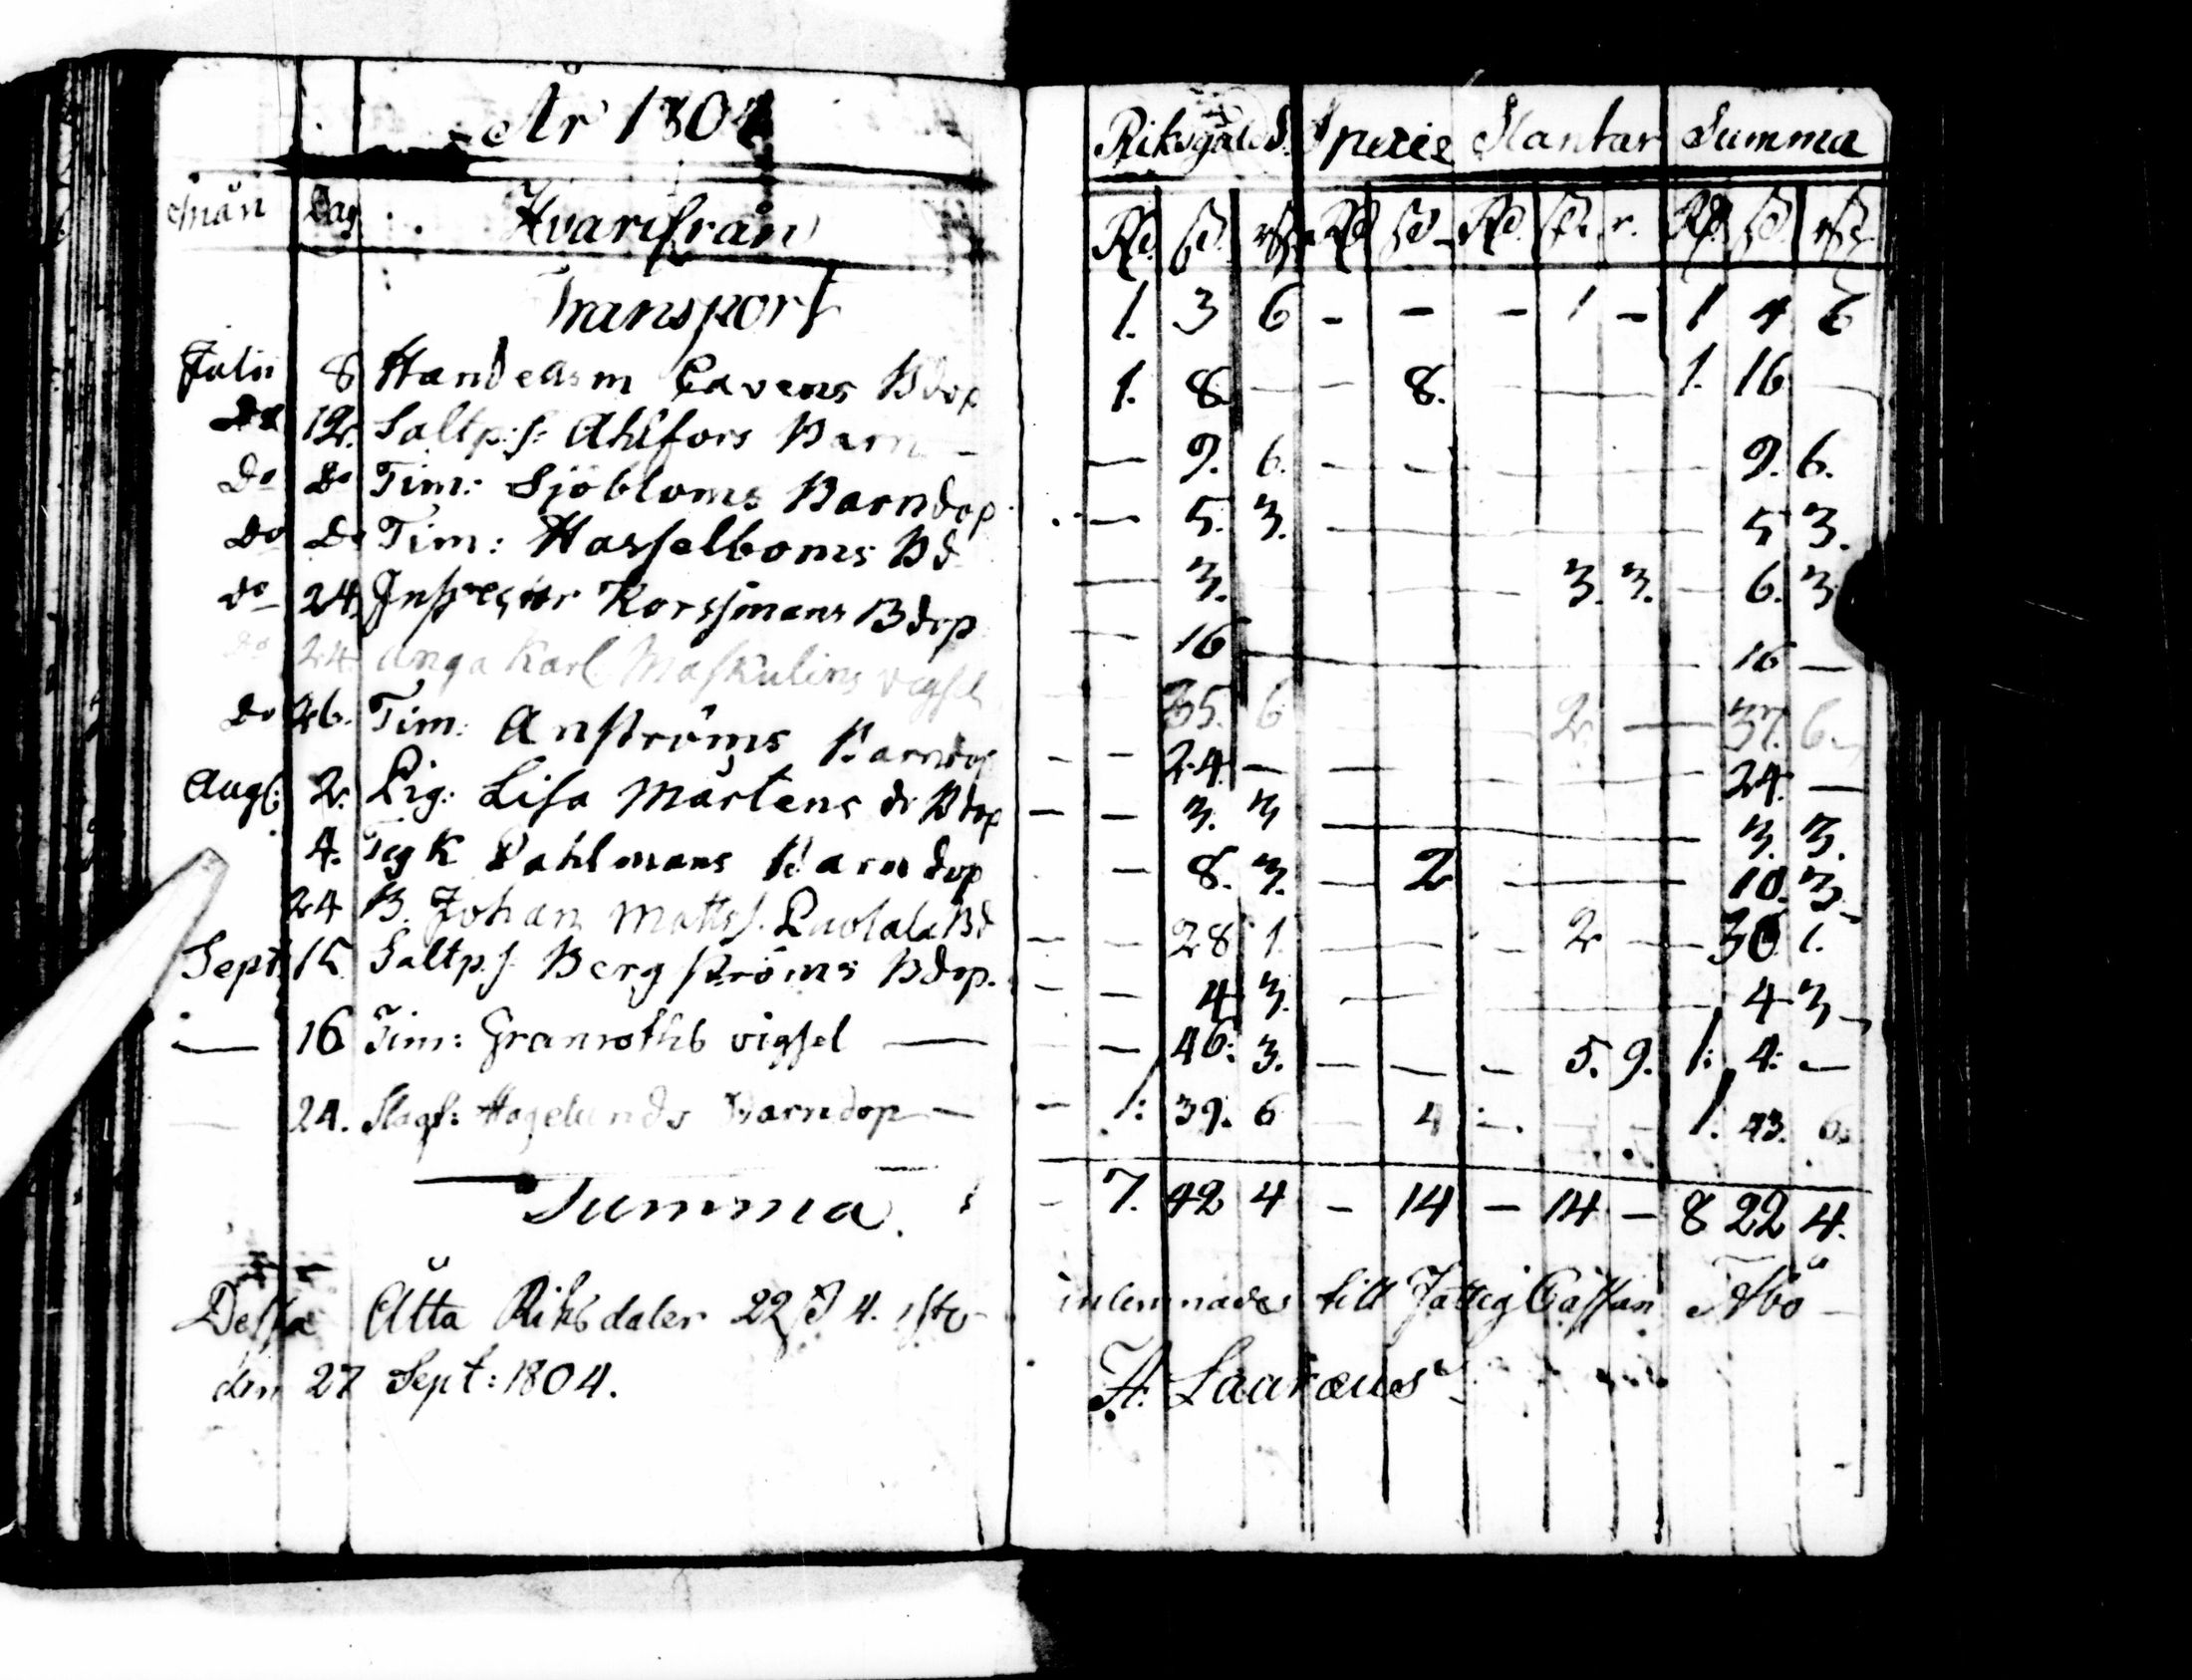 År 1804
Riksgälds. Specie Slantar Summa
Mån Dag Hvarifrån
Rd. ß. rst. Rd ß. Rd. ß. r. Rd. ß. rst.
Transport 1. 3 6 - - - 1 - 1 4 6
Julii 8 Handelsm Cavens Bdop 1. 8 — — 8. — — 1. 16 —
Do 12. Saltp:s: Ahlfors Barn — — 9. 6. — — — 9. 6.
Do Do Tim: Sjöbloms Barndop — 5. 3. — 5 3.
Do Do Tim: Hasselboms Bd — 3. 3. 3. — 6. 3
do 24. Inspector Korssmans Bdop — 16 — 16 —
do 24 unga Karl Maskulins vigsel — 35. 6 2 — 37. 6.
Do 26. Tim: Anströms Barndop - - 24 — — 24. —
Augs: 2. Pig: Lisa Mårtens dr Bdop — — 3. 3 — 3. 3.
4. Tegk Dahlmans Barndop — 8. 3. — 2 — 10. 3.
24 B. Johan Matts. Luolala Bd — — 28 1. — 2 — 30 1.
Sept 15 Saltp.s. Bergströms Bdop. — — 4 3. — 4 3
— 16 Tim: Granroths vigsel — — 46: 3. — — — 5. 9. 1: 4: —
— 24. Slagt: Hagelunds Barndop — — 1: 39. 6 — 4 — 1. 43. 6.
Summa. — 7. 42 4 - 14 - 14 - 8 22 4.
Dessa Åtta Riksdaler 22 ß 4. rst inlemnades till Fattig Cassan Åbo
den 27 Sept: 1804. Laaræus